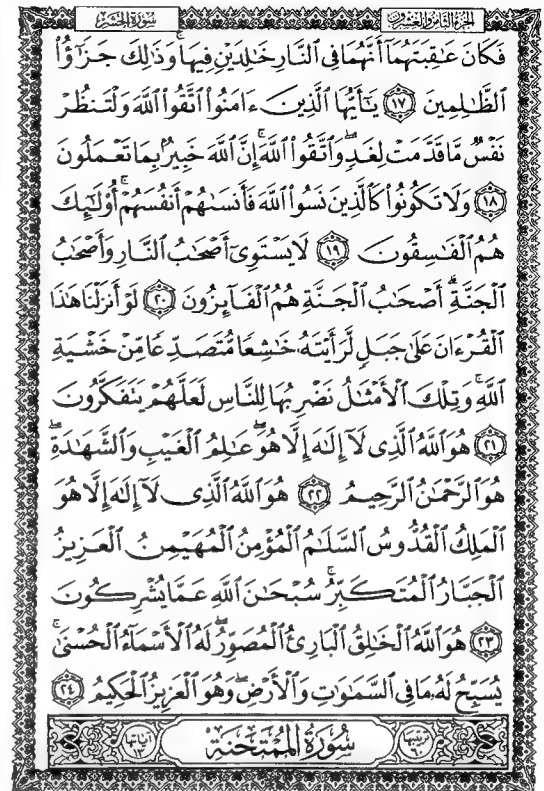 الجزء الثامن والعشرون سورة الحشر
فَكَانَ عَـٰقِبَتَهُمَآ أَنَّهُمَا فِى ٱلنَّارِ خَـٰلِدَيْنِ فِيهَا ۚ وَذَٰلِكَ جَزَٰٓؤُا۟
ٱلظَّـٰلِمِينَ ١٧ يَـٰٓأَيُّهَا ٱلَّذِينَ ءَامَنُوا۟ ٱتَّقُوا۟ ٱللَّهَ وَلْتَنظُرْ
نَفْسٌ مَّا قَدَّمَتْ لِغَدٍ ۖ وَٱتَّقُوا۟ ٱللَّهَ ۚ إِنَّ ٱللَّهَ خَبِيرٌۢ بِمَا تَعْمَلُونَ
١٨ وَلَا تَكُونُوا۟ كَٱلَّذِينَ نَسُوا۟ ٱللَّهَ فَأَنسَىٰهُمْ أَنفُسَهُمْ ۚ أُو۟لَـٰٓئِكَ
هُمُ ٱلْفَـٰسِقُونَ ١٩ لَا يَسْتَوِىٓ أَصْحَـٰبُ ٱلنَّارِ وَأَصْحَـٰبُ
ٱلْجَنَّةِ ۚ أَصْحَـٰبُ ٱلْجَنَّةِ هُمُ ٱلْفَآئِزُونَ ٢٠ لَوْ أَنزَلْنَا هَـٰذَا
ٱلْقُرْءَانَ عَلَىٰ جَبَلٍ لَّرَأَيْتَهُۥ خَـٰشِعًا مُّتَصَدِّعًا مِّنْ خَشْيَةِ
ٱللَّهِ ۚ وَتِلْكَ ٱلْأَمْثَـٰلُ نَضْرِبُهَا لِلنَّاسِ لَعَلَّهُمْ يَتَفَكَّرُونَ
٢١ هُوَ ٱللَّهُ ٱلَّذِى لَآ إِلَـٰهَ إِلَّا هُوَ ۖ عَـٰلِمُ ٱلْغَيْبِ وَٱلشَّهَـٰدَةِ ۖ
هُوَ ٱلرَّحْمَـٰنُ ٱلرَّحِيمُ ٢٢ هُوَ ٱللَّهُ ٱلَّذِى لَآ إِلَـٰهَ إِلَّا هُوَ
ٱلْمَلِكُ ٱلْقُدُّوسُ ٱلسَّلَـٰمُ ٱلْمُؤْمِنُ ٱلْمُهَيْمِنُ ٱلْعَزِيزُ
ٱلْجَبَّارُ ٱلْمُتَكَبِّرُ ۚ سُبْحَـٰنَ ٱللَّهِ عَمَّا يُشْرِكُونَ
٢٣ هُوَ ٱللَّهُ ٱلْخَـٰلِقُ ٱلْبَارِئُ ٱلْمُصَوِّرُ ۖ لَهُ ٱلْأَسْمَآءُ ٱلْحُسْنَىٰ ۚ
يُسَبِّحُ لَهُۥ مَا فِى ٱلسَّمَـٰوَٰتِ وَٱلْأَرْضِ ۖ وَهُوَ ٱلْعَزِيزُ ٱلْحَكِيمُ ٢٤
ترتيبها ٦٠ سُورَةُ المُمتَحنَةِ آياتها ١٣